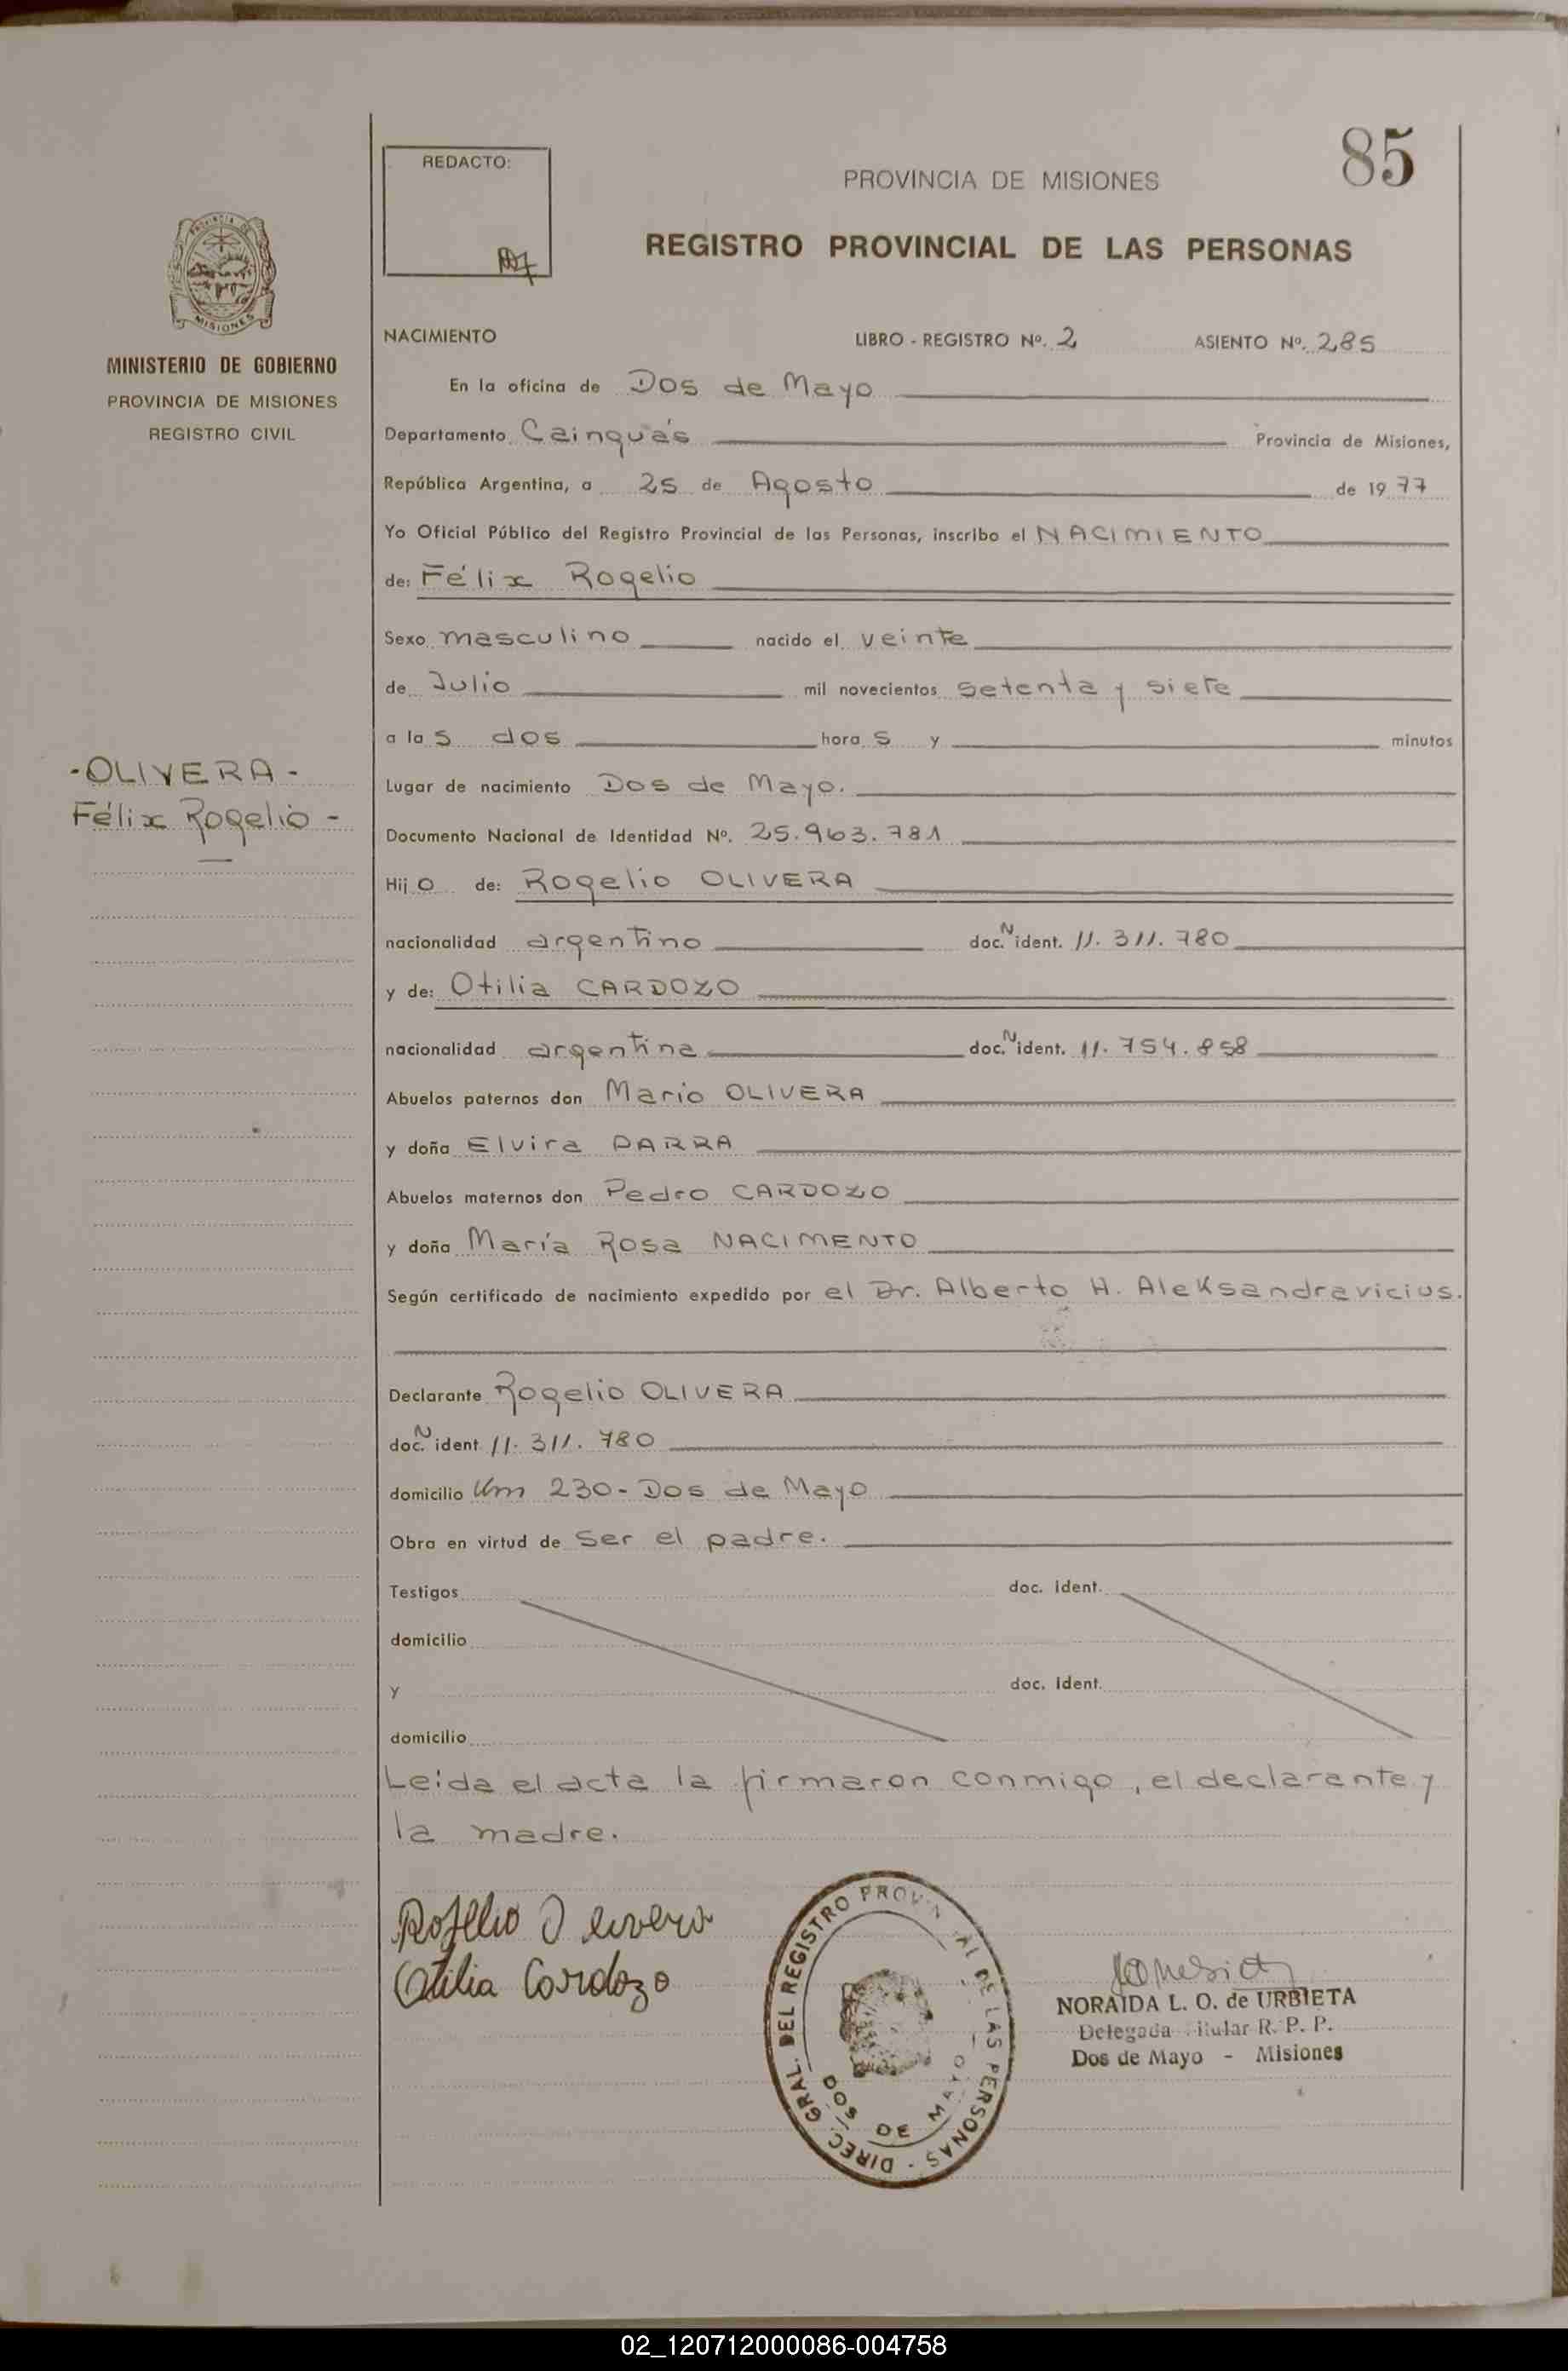 85
REDACTO:
PROVINCIA DE MISIONES
REGISTRO PROVINCIAL DE LAS PERSONAS
MISIONES
MINISTERIO DE GOBIERNO
PROVINCIA DE MISIONES
REGISTRO CIVIL
-OLIVERA-
Félix Rogelio -
NACIMIENTO LIBRO - REGISTRO Nº. 2 ASIENTO Nº. 285
En la oficina de Dos de Mayo
Departamento Cainguás Provincia de Misiones,
República Argentina, a 25 de Agosto de 1977
Yo Oficial Público del Registro Provincial de las Personas, inscribo el NACIMIENTO
de: Félix Rogelio
Sexo masculino nacido el veinte
de Julio mil novecientos setenta y siete
a las dos horas y minutos
Lugar de nacimiento Dos de Mayo.
Documento Nacional de Identidad Nº. 25.963.781
Hijo de: Rogelio OLIVERA
nacionalidad argentino doc. N ident. 11.311.780
y de: Otilia CARDOZO
nacionalidad argentina doc. N ident. 11.754.858
Abuelos paternos don Mario OLIVERA
y doña Elvira PARRA
Abuelos maternos don Pedro CARDOZO
y doña María Rosa NACIMENTO
Según certificado de nacimiento expedido por el Dr. Alberto H. Aleksandravicius.
Declarante Rogelio OLIVERA
doc. N ident 11.311.780
domicilio Km 230- Dos de Mayo
Obra en virtud de ser el padre.
Testigos doc. ident.
domicilio
y doc. ident.
domicilio
Leída el acta la firmaron conmigo, el declarante y
la madre.
Rogelio Olivera
Otilia Cardozo
DIREC. GRAL. DEL REGISTRO PROVINCIAL DE LAS PERSONAS -
DOS DE MAYO
NORAIDA L. O. de URBIETA
Delegada Titular R. P. P.
Dos de Mayo - Misiones
02_120712000086-004758